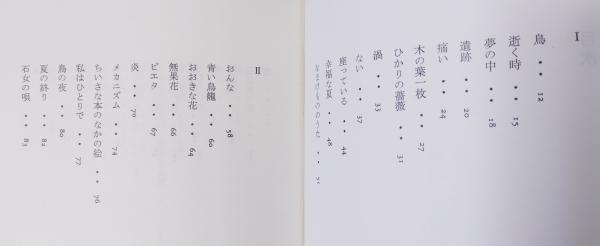 I
鳥・・12
逝く時・・15
夢の中・・18
遺跡・・20
痛い・・24
木の葉一枚・・27
ひかりの薔薇・・31
渦・・33
ない・・37
座っている・・44
幸福な夏・・48
なまけもののうた・・51
II
おんな・・58
青い鳥籠・・60
おおきな花・・64
無果花・・66
ピエタ・・67
炎・・70
メカニズム・・74
ちいさな本のなかの絵・・76
私はひとりで・・77
鳥の夜・・80
夏の終り・・82
石女の唄・・83